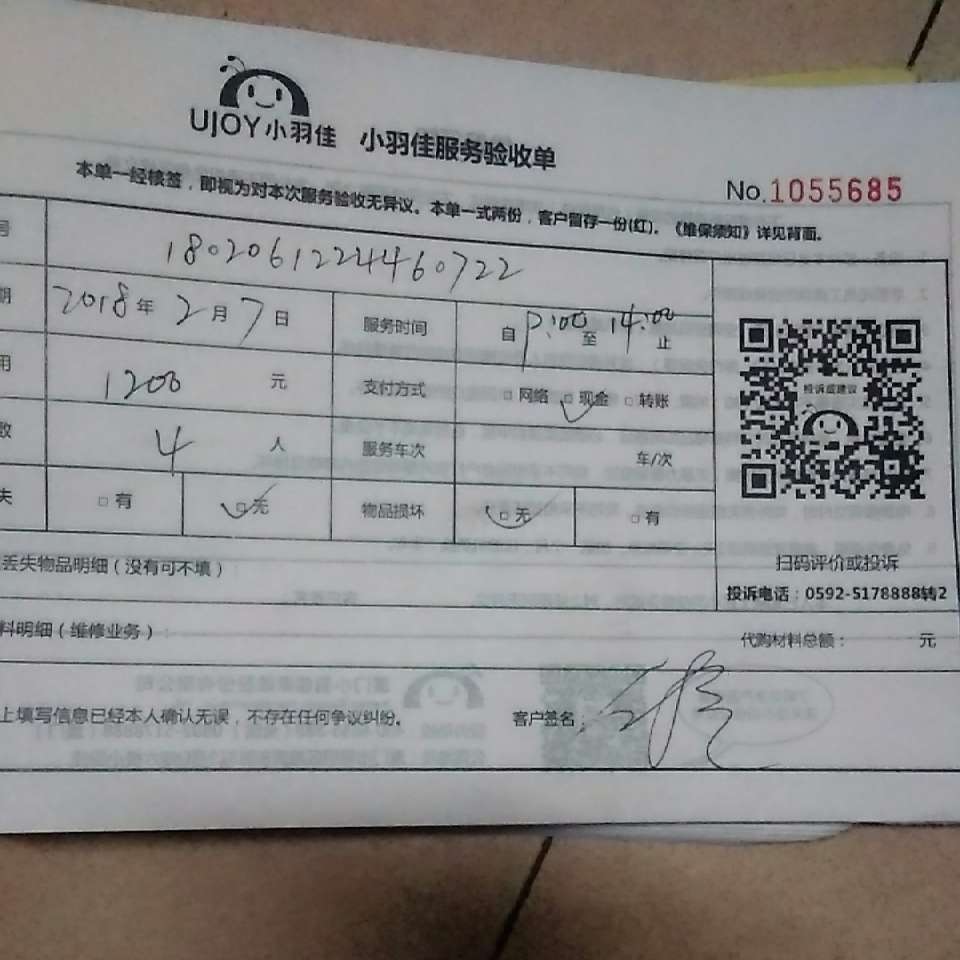 UJOY小羽佳 小羽佳服务验收单
No.1055685
本单一经核签，即视为对本次服务验收无异议。本单一式两份，客户留存一份(红)。《维保须知》详见背面。
号 1802061224460722
期 2018年2月7日 服务时间 自 9:00 至 14:00 止
用 1200 元 支付方式 □网络 □现金 □转账
数 4 人 服务车次 车/次
失 □有 □无 物品损坏 □无 □有
投诉或建议
扫码评价或投诉
投诉电话：0592-5178888转2
丢失物品明细（没有可不填）
料明细（维修业务）： 代购材料总额： 元
上填写信息已经本人确认无误，不存在任何争议纠纷。 客户签名：